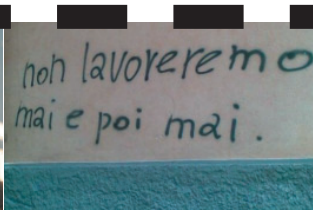 non lavoreremo
mai e poi mai.